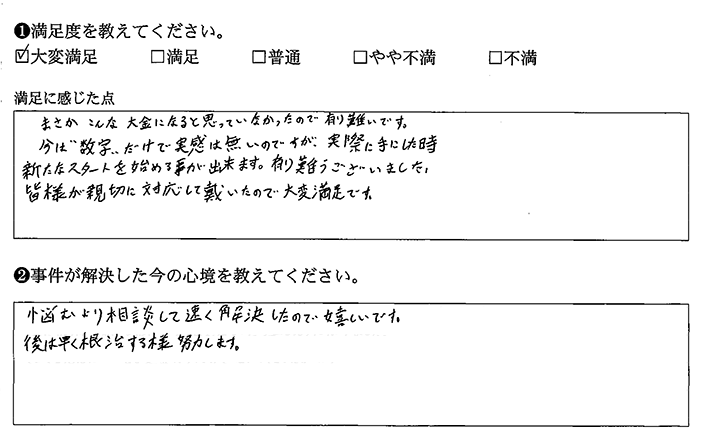 ❶満足度を教えてください。
☑大変満足 □満足 □普通 □やや不満 □不満
満足に感じた点
まさか こんな 大金になると思っていなかったので有り難いです。
今は〝数字〟だけで実感は無いのですが、実際に手にした時
新たなスタートを始める事が出来ます。有り難うございました。
皆様が親切に対応して戴いたので大変満足です。
❷事件が解決した今の心境を教えてください。
悩むより相談して速く解決したので嬉しいです。
後は早く根治する様努力します。